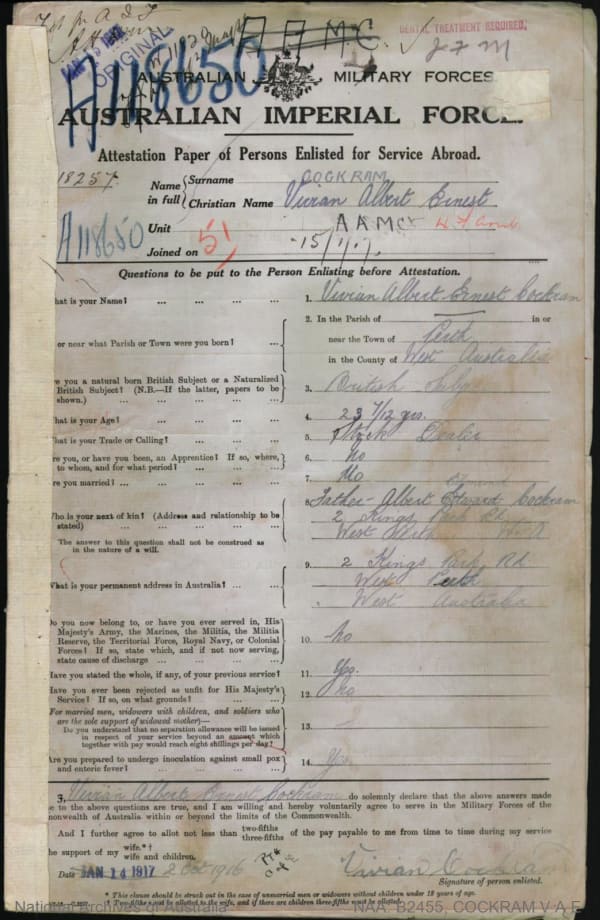 ORIGINAL
A118650
A A M C.
DENTAL TREATMENT REQUIRED.
AUSTRALIAN MILITARY FORCES
AUSTRALIAN IMPERIAL FORCE.
Attestation Paper of Persons Enlisted for Service Abroad.
18257.
Name in full
Surname COCKRAM
Christian Name Vivian Albert Ernest
A118650
Unit A A M C
51
Joined on 15/1/17.
Questions to be put to the Person Enlisting before Attestation.
hat is your Name? ... ... ... ... 1. Vivian Albert Ernest Cockram
2. In the Parish of in or
or near what Parish or Town were you born? ... near the Town of Perth
in the County of West Australia
re you a natural born British Subject or a Naturalized
British Subject? (N.B.—If the latter, papers to be
shown.) ... ... ... ... 3. British Subj
hat is your Age? ... ... ... ... 4. 23 7/12 yrs.
hat is your Trade or Calling? ... ... ... 5. Stock Dealer
re you, or have you been, an Apprentice? If so, where,
to whom, and for what period? ... ... ... 6. No
re you married? ... ... ... ... 7. No
8. Father - Albert Edward Cockram
ho is your next of kin? (Address and relationship to be
stated) ... ... ... 2 Kings Park Rd
West Perth W.A
The answer to this question shall not be construed as
in the nature of a will.
9. 2 Kings Park Rd
hat is your permanent address in Australia? ... ... West Perth
West Australia
o you now belong to, or have you ever served in, His
Majesty's Army, the Marines, the Militia, the Militia
Reserve, the Territorial Force, Royal Navy, or Colonial
Forces? If so, state which, and if not now serving,
state cause of discharge ... ... ... 10. No
ave you stated the whole, if any, of your previous service? 11. Yes.
ave you ever been rejected as unfit for His Majesty's
Service? If so, on what grounds? ... ... 12. No
For married men, widowers with children, and soldiers who
are the sole support of widowed mother)—
Do you understand that no separation allowance will be issued
in respect of your service beyond an amount which
together with pay would reach eight shillings per day? 13. —
re you prepared to undergo inoculation against small pox
and enteric fever? ... ... ... 14. Yes
3, Vivian Albert Ernest Cockram do solemnly declare that the above answers made
e to the above questions are true, and I am willing and hereby voluntarily agree to serve in the Military Forces of the
nonwealth of Australia within or beyond the limits of the Commonwealth.
And I further agree to allot not less than two-fifths three-fifths of the pay payable to me from time to time during my service
he support of my wife.*† wife and children.
Date JAN 14 1917 2 Oct 1916
Vivian Cockram
Signature of person enlisted.
* This clause should be struck out in the case of unmarried men or widowers without children under 18 years of age.
† Two-fifths must be allotted to the wife, and if there are children three-fifths must be allotted.
National Archives of Australia
NAA: B2455, COCKRAM V A E